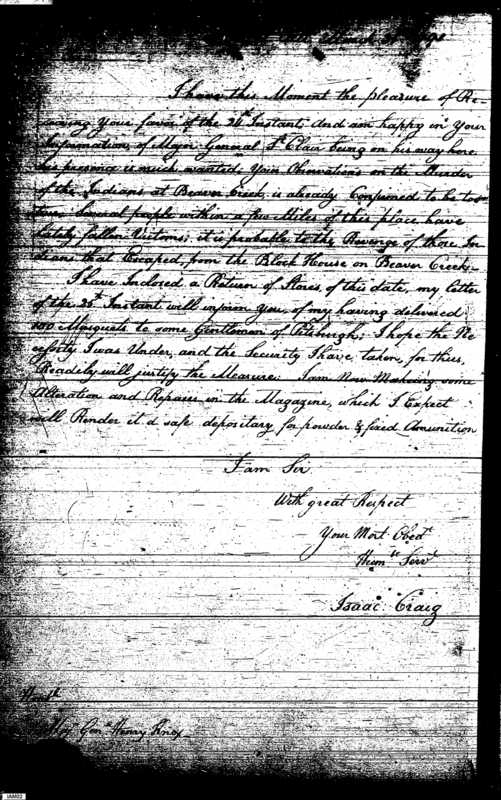 March 31st 1791
I have this Moment the pleasure of Re-
ceiving your favor of the 24th Instant, and am happy in your
Information, of Major General St Clair being on his way here
his presence is much wanted; your Observations on the Murder
of the Indians at Beaver Creek, is already Confirmed to be too
true, Several people within a few Miles of this place have
lately fallen Victims; it is probable to the Revenge of those In
dians that Escaped from the Block House on Beaver Creek.
I have Inclosed a Return of Stores, of this date, my letter
of the 25th Instant will inform you, of my having delivered
100 Musquets to some Gentlemen of Pittsburgh; I hope the Ne
cessity I was Under, and the Security I have taken, for this,
Readily will justify the Measure. I am Now Making some
Alteration and Repairs in the Magazine, which I Expect
will Render it a safe depositary for powder & fixed Amunition
I am Sir
With great Respect
Your Most Obedt
Humle Servt
Isaac Craig
Honble
Majr Genl Henry Knox
IAM02